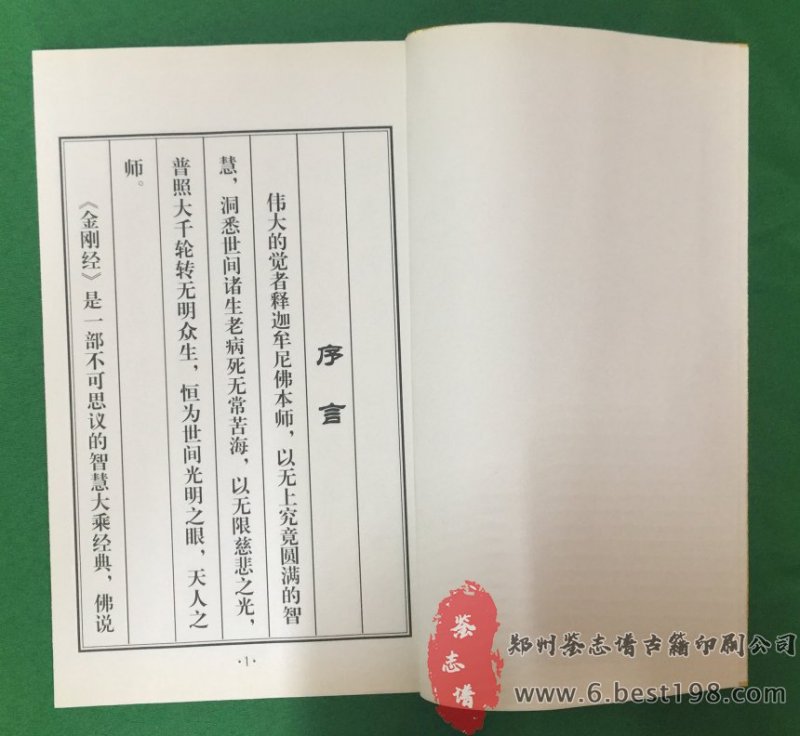 序言
伟大的觉者释迦牟尼佛本师，以无上究竟圆满的智
慧，洞悉世间诸生老病死无常苦海，以无限慈悲之光，
普照大千轮转无明众生，恒为世间光明之眼，天人之
师。
《金刚经》是一部不可思议的智慧大乘经典，佛说
·1·
鉴志谱
郑州鉴志谱古籍印刷公司
www.6.best198.com